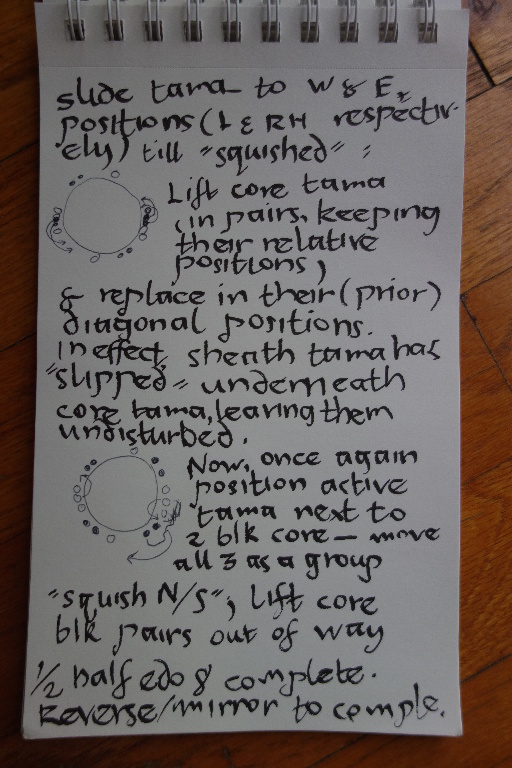 slide tama to W & E,
positions (L & RH respectiv-
ely) till "squished" ;
Lift core tama
in pairs, keeping
their relative
positions,
& replace in their (prior)
diagonal positions.
In effect, sheath tama has
"slipped" underneath
core tama, leaving them
undisturbed.
Now, once again
position active
tama next to
2 blk core — move
all 3 as a group
"squish N/S", Lift core
blk pairs out of way
1/2 half edo 8 complete.
Reverse/mirror to comple.